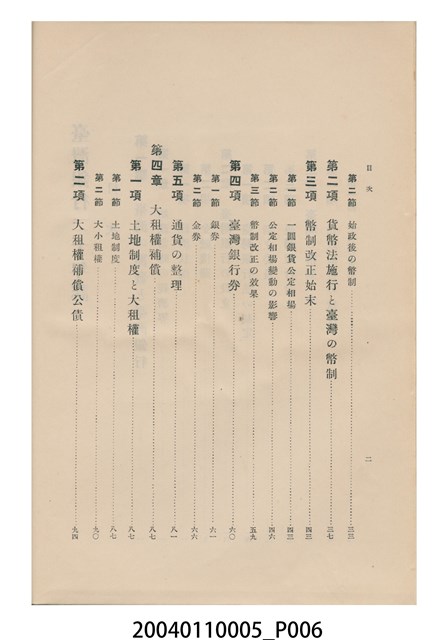 目次
第二節 始政後の幣制 三三
第二項 貨幣法施行と臺灣の幣制 三七
第三項 幣制改正始末 四三
第一節 一圓銀貨公定相場 四三
第二節 公定相場變動の影響 四六
第三節 幣制改正の效果 五九
第四項 臺灣銀行券 六〇
第一節 銀券 六一
第二節 金券 六六
第五項 通貨の整理 八一
第四章 大租權補償 八七
第一項 土地制度と大租權 八七
第一節 土地制度 八七
第二節 大小租權 九〇
第二項 大租權補償公債 九四
二
20040110005_P006